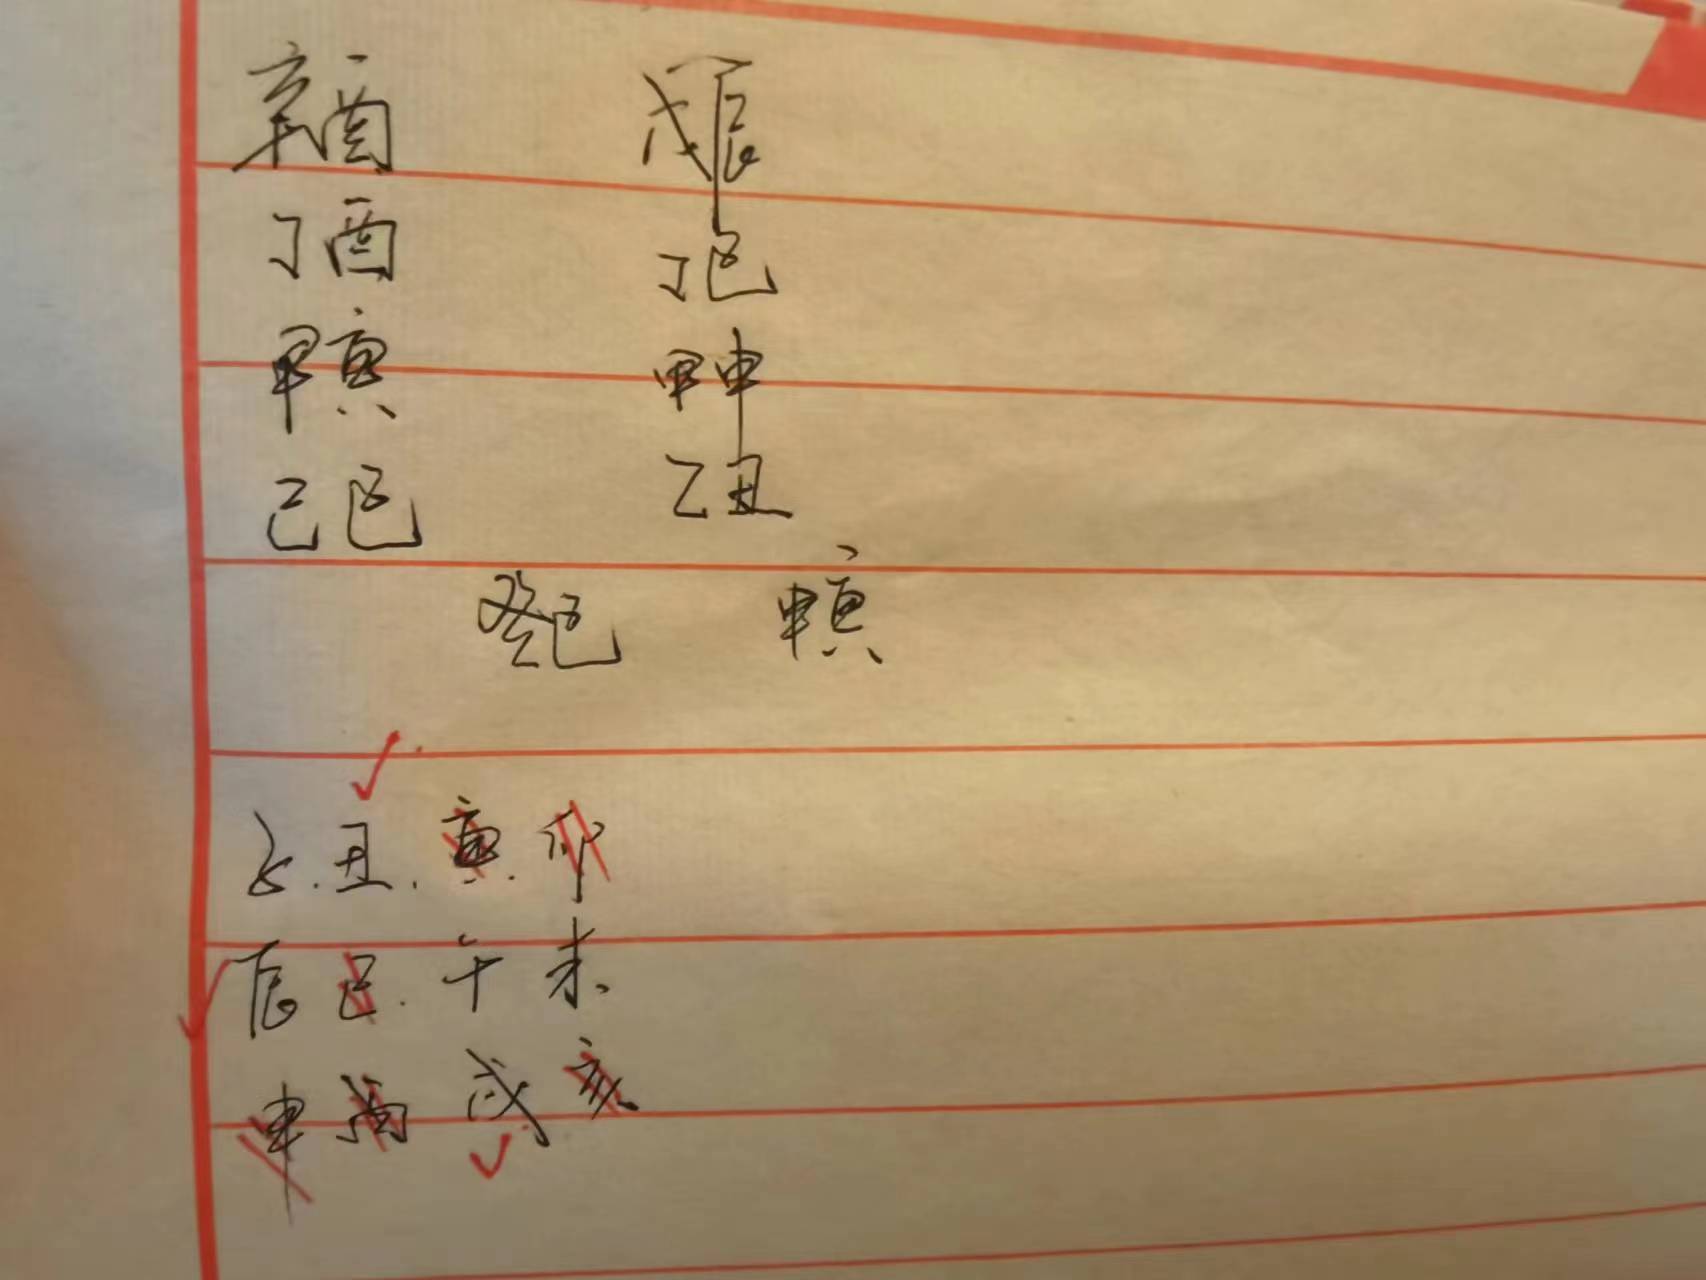 辛酉 戊辰
丁酉 丁巳
甲寅 甲申
己巳 乙丑
癸巳 甲寅
子.丑.寅.卯
辰 巳.午 未
申 酉 戌 亥